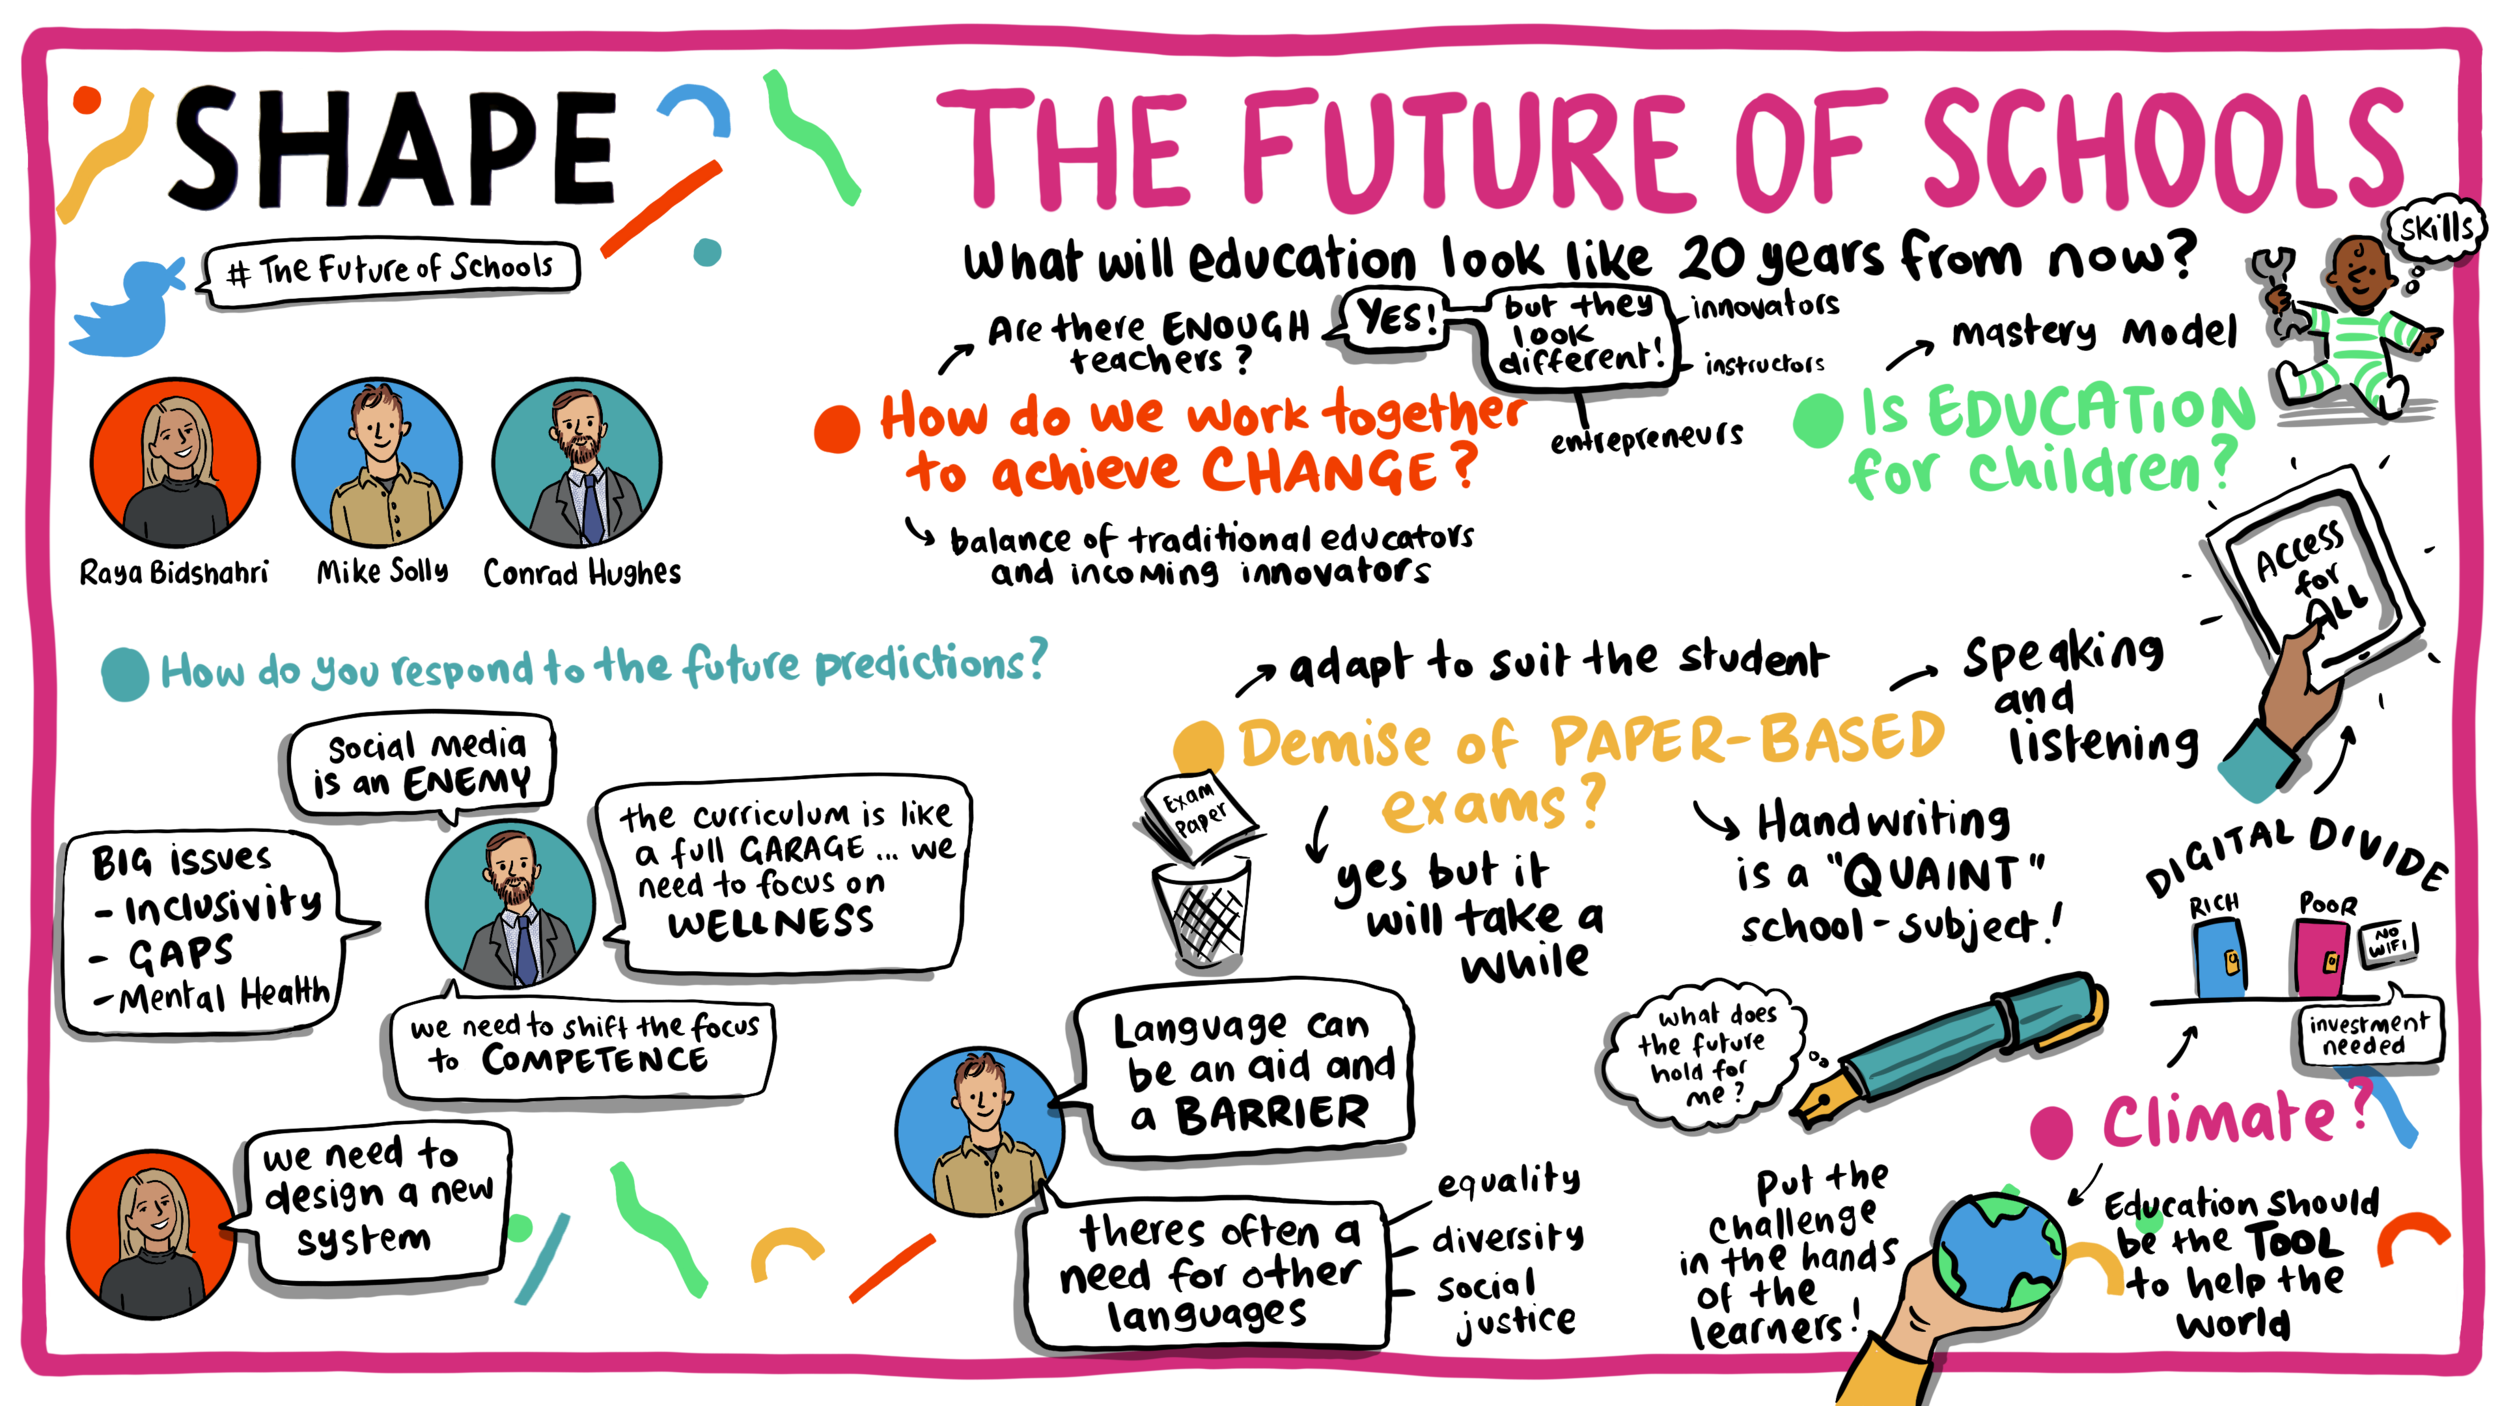 SHAPE
THE FUTURE OF SCHOOLS
# The Future of Schools
Raya Bidshahri
Mike Solly
Conrad Hughes
What will education look like 20 years from now?
Are there ENOUGH
teachers?
YES!
but they
look
different!
innovators
instructors
entrepreneurs
How do we work together
to achieve CHANGE?
balance of traditional educators
and incoming innovators
skills
mastery Model
Is EDUCATION
for children?
Access
for
ALL
How do you respond to the future predictions?
Social Media
is an ENEMY
BIG issues
- Inclusivity
- GAPS
- Mental Health
the curriculum is like
a full GARAGE ... we
need to focus on
WELLNESS
we need to shift the focus
to COMPETENCE
we need to
design a new
system
adapt to suit the student
Demise of PAPER-BASED
exams?
Exam
Paper
yes but it
will take a
while
speaking
and
listening
Handwriting
is a "QUAINT"
school-subject!
what does
the future
hold for
me?
Language can
be an aid and
a BARRIER
theres often a
need for other
languages
equality
diversity
social
justice
DIGITAL DIVIDE
RICH
POOR
NO
WIFI
investment
needed
Climate?
Put the
challenge
in the hands
of the
learners!
Education should
be the TOOL
to help the
world